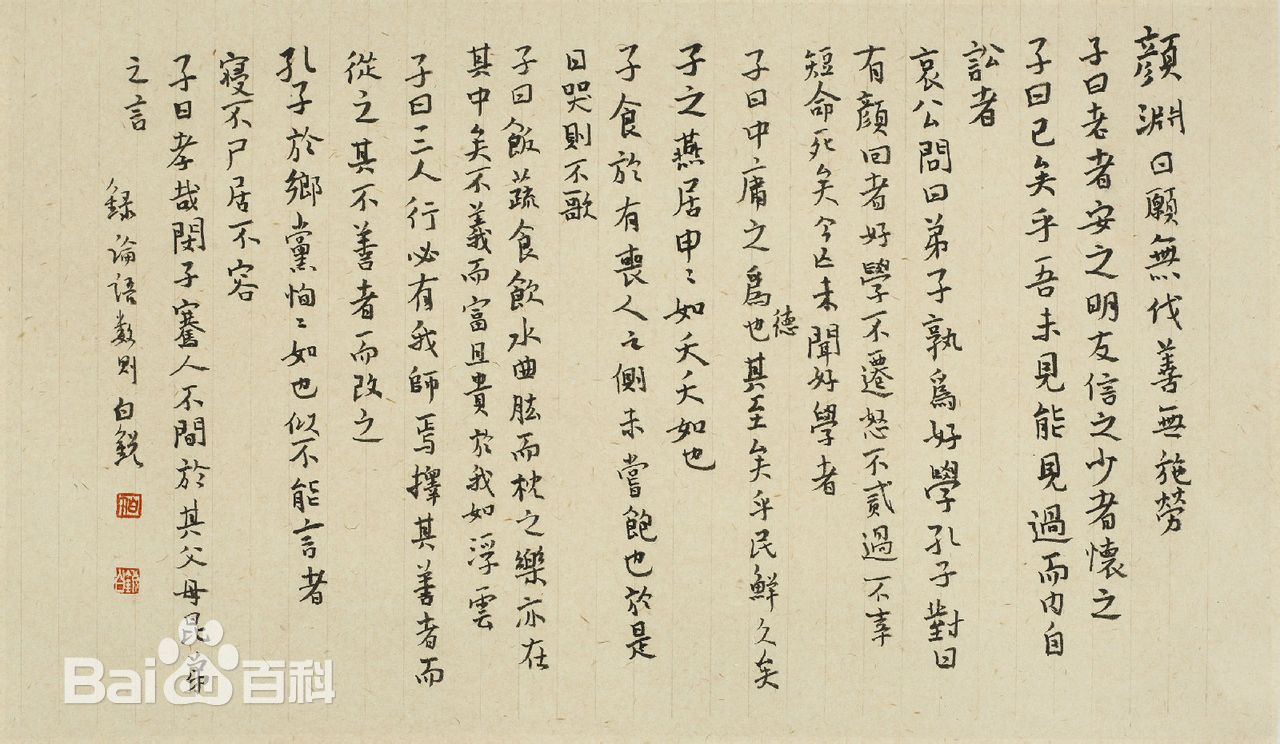 顔淵曰願無伐善無施勞
子曰老者安之朋友信之少者懷之
子曰已矣乎吾未見能見過而内自
訟者
哀公問曰弟子孰爲好學孔子對曰
有顔回者好學不遷怒不貳過不幸
短命死矣今亡未聞好學者
子曰中庸之爲德也其至矣乎民鮮久矣
子之燕居申〻如夭夭如也
子食於有喪人之側未嘗飽也於是
日哭則不歌
子曰飯蔬食飲水曲肱而枕之樂亦在
其中矣不義而富且貴於我如浮雲
子曰三人行必有我師焉擇其善者而
從之其不善者而改之
孔子於鄉黨恂〻如也似不能言者
寢不尸居不容
子曰孝哉閔子騫人不間於其父母昆弟
之言
錄論語數則白銳
Baidu百科